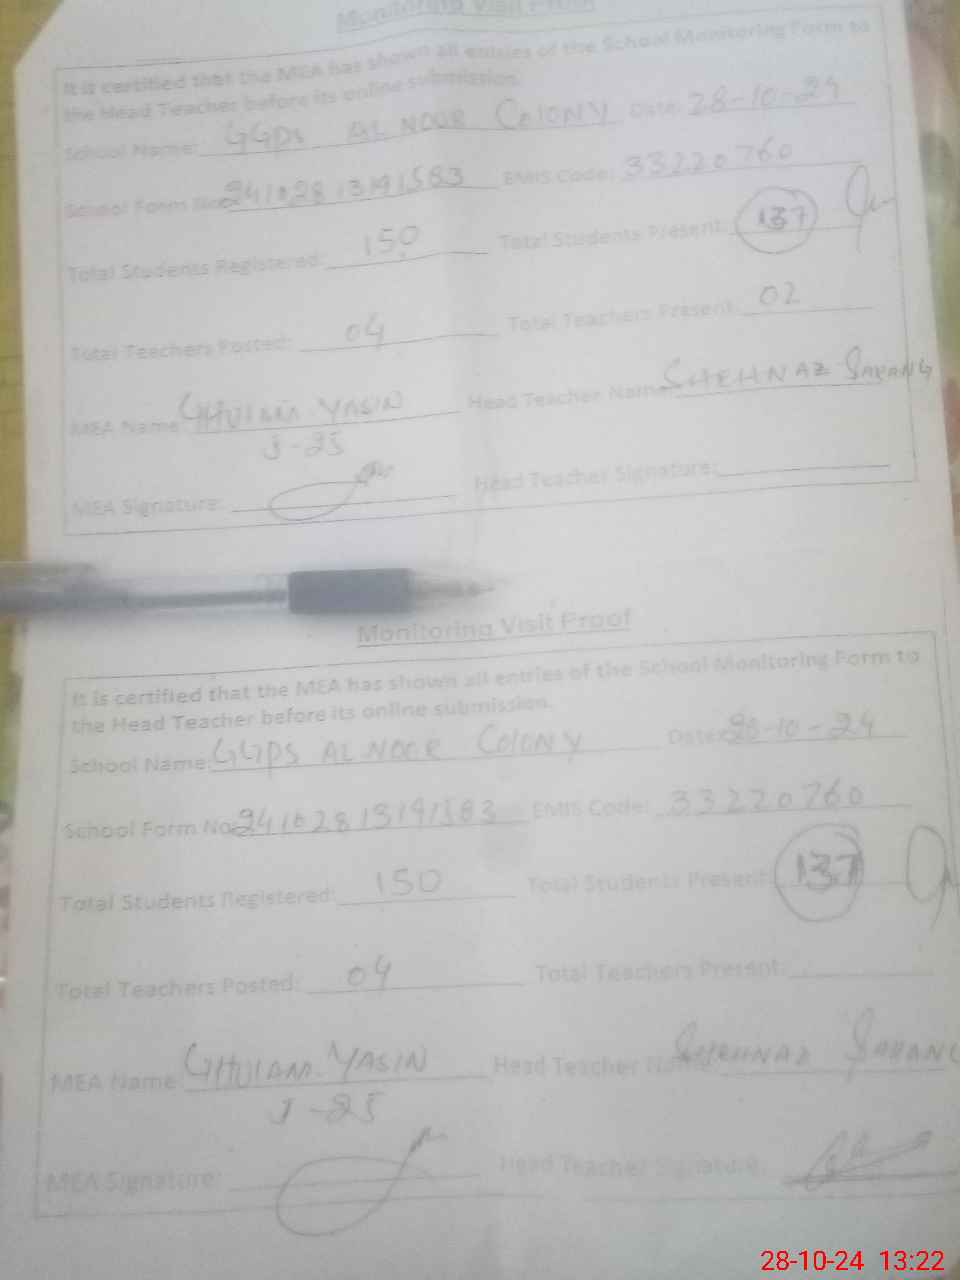 Monitoring Visit Proof
It is certified that the MEA has shown all entries of the School Monitoring Form to
the Head Teacher before its online submission.
School Name: GGPS AL NOOR COLONY Date: 28-10-24
School Form No: 24102813191583 EMIS Code: 33220760
Total Students Registered: 150 Total Students Present: 137
Total Teachers Posted: 04 Total Teachers Present: 02
MEA Name: GHULAM YASIN Head Teacher Name: SHEHNAZ
J-25
MEA Signature: Head Teacher Signature:
Monitoring Visit Proof
It is certified that the MEA has shown all entries of the School Monitoring Form to
the Head Teacher before its online submission.
School Name: GGPS AL NOOR COLONY Date: 28-10-24
School Form No: 24102813191583 EMIS Code: 33220760
Total Students Registered: 150 Total Students Present: 137
Total Teachers Posted: 04 Total Teachers Present:
MEA Name: GHULAM YASIN Head Teacher Name: SHEHNAZ
J-25
MEA Signature: Head Teacher Signature:
28-10-24 13:22